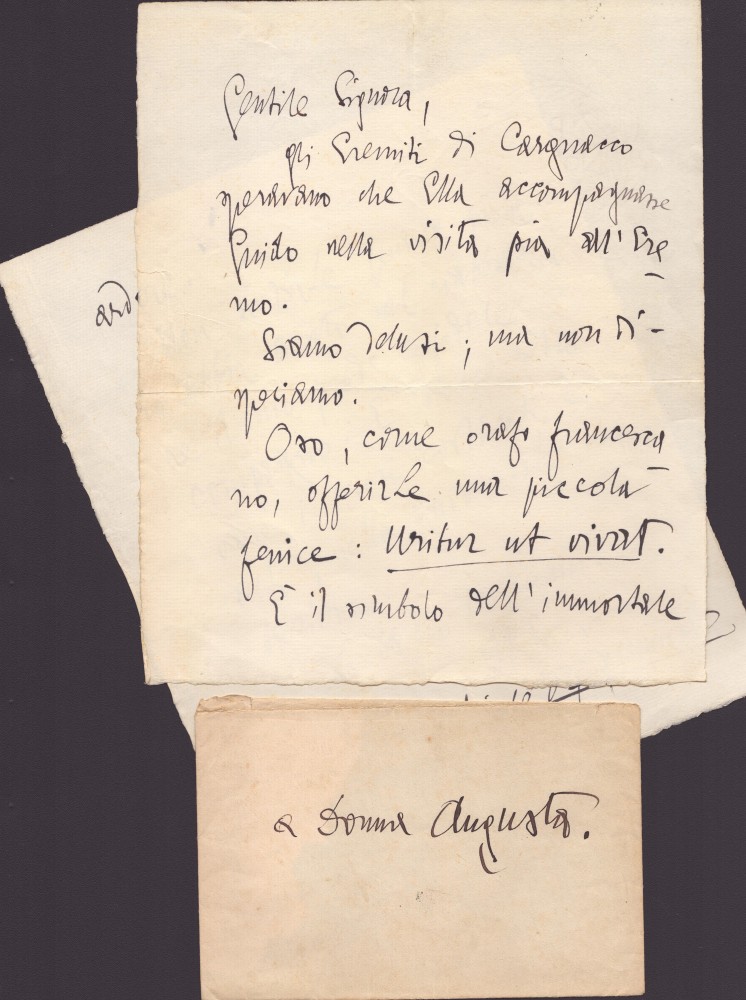 Gentile Signora,
gli Eremiti di Cargnacco
speravano che Ella accompagnasse
Guido nella visita pia all'Ere
mo.
Siamo delusi; ma non di-
speriamo.
Oso, come orafo francesca
no, offerirLe una piccola
fenice: Uritur ut vivat.
È il simbolo dell'immortale
a Donna Augusta.